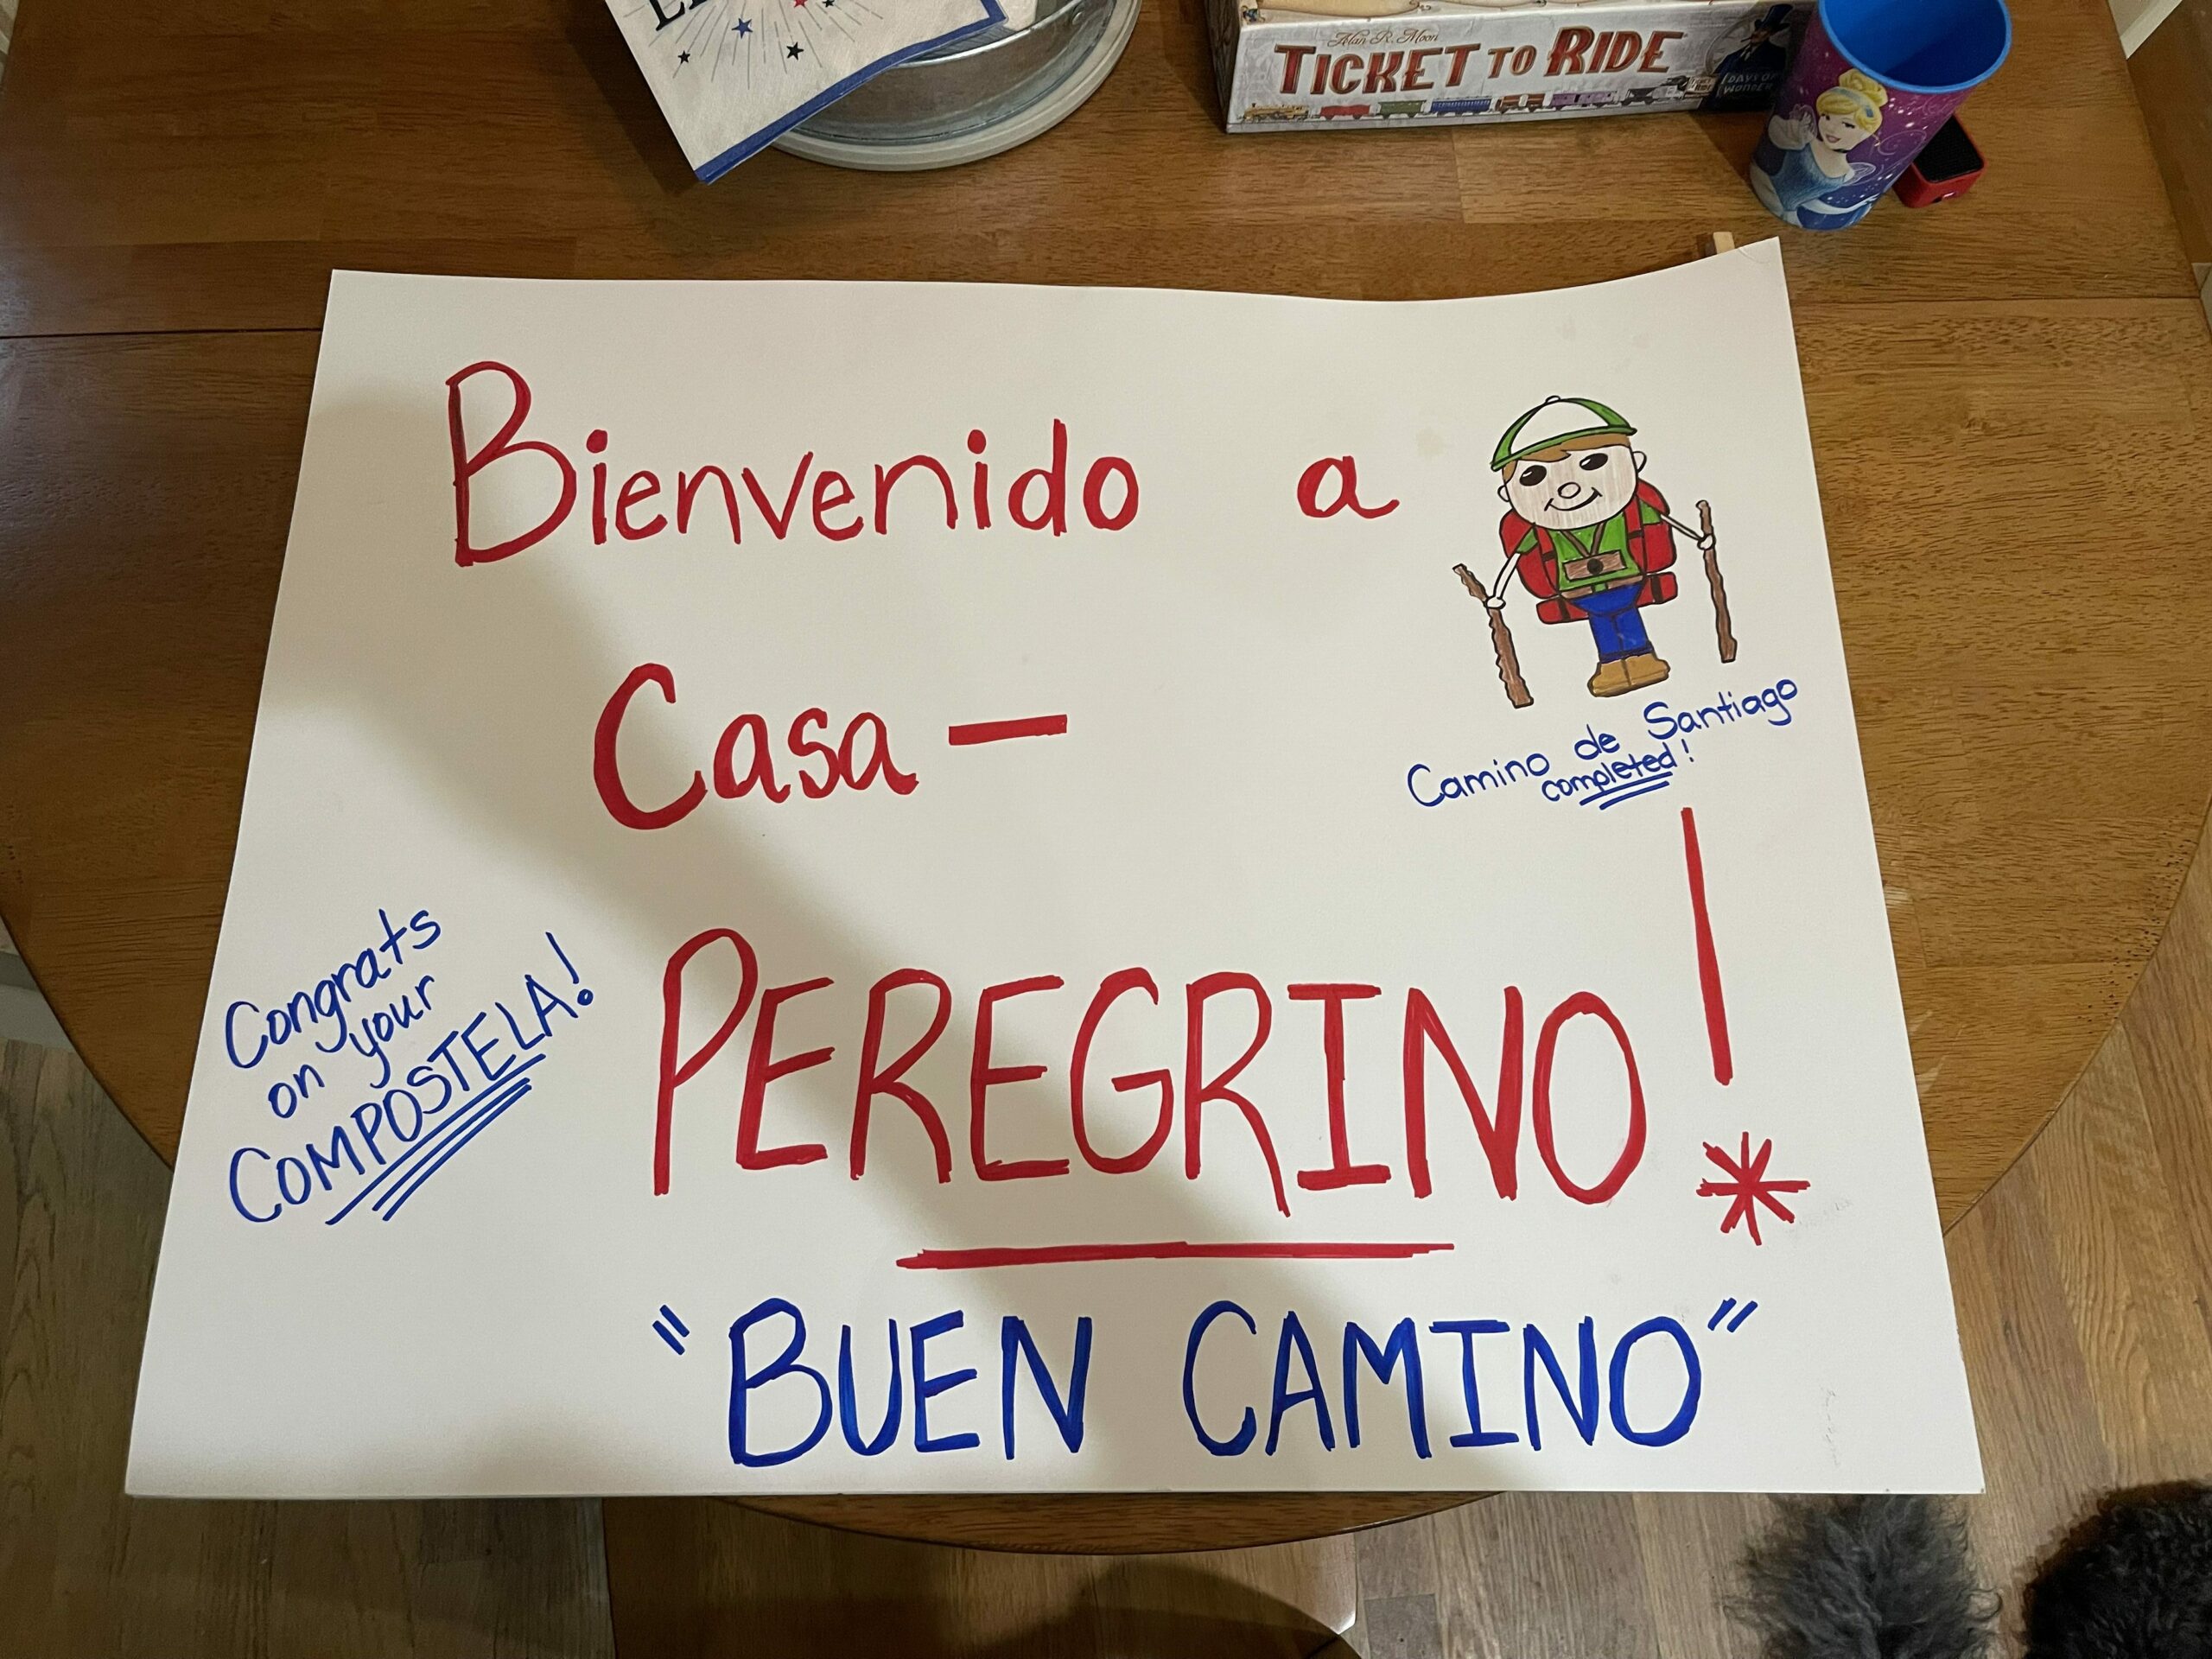 Alan R. Moon
TICKET TO RIDE
DAYS OF
WONDER
Bienvenido a
Casa —
Camino de Santiago
completed!
Congrats
on your
COMPOSTELA!
PEREGRINO!
"BUEN CAMINO"